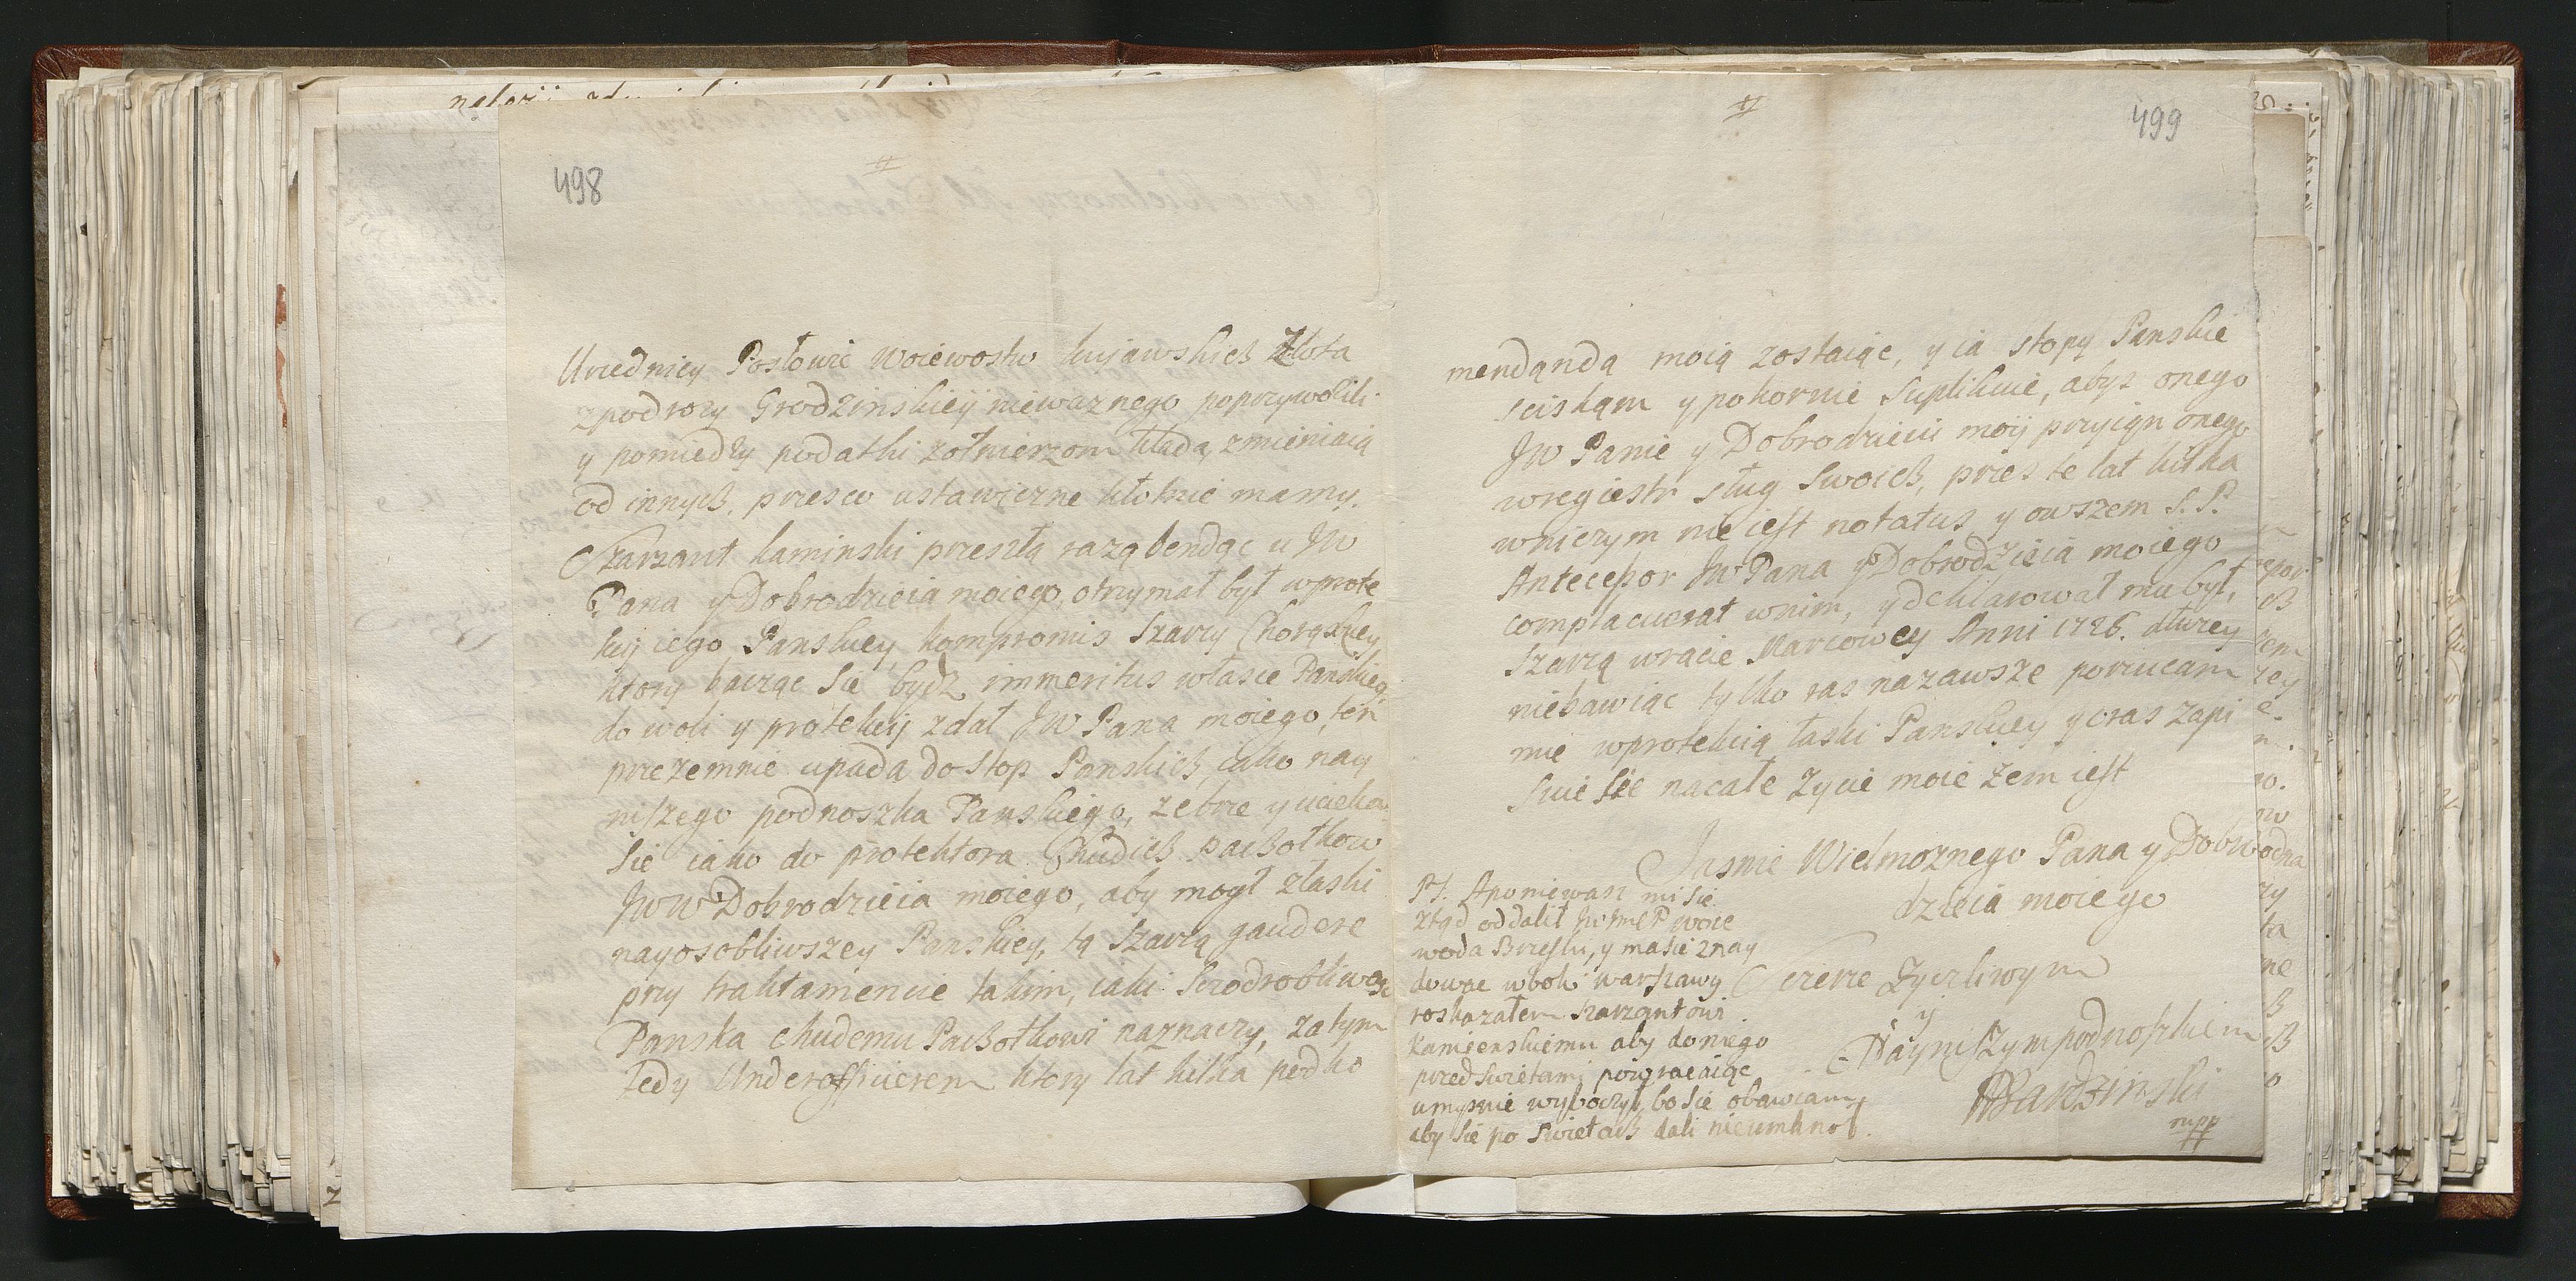 498
Urzednicy Posłowie Woiewostw kujawskich Złota
z podrozy Grodzinskiey niewaznego poprzywozili
y pomiedzy podatki zołnierzom kłada, zmieniaią
od innych, przesco ustawiczne kłotnie mamy.
Szarzant kaminski przeszłą razą bendąc u JW
Pana y Dobrodzieia moiego, otrzymał był w prote
kcij iego Panskiey, kompromis Szarzy Chorązkiey
ktory bacząc Sie bydz immeritus własce Panskiey
do woli y protekcij zdał JW Pana moiego, ten
przezemnie upada do stop Panskich, iako nay
niszego podnoszka Panskiego, zebrze y ucieka
Sie iako do protektora Chudich pachołkow
JWW Dobrodzieia moiego, aby mogł złaski
nayosobliwszey Panskiey, tą Szarzą gaudere
przy traktamencie takim, iaki Szodrobliwosc
Panska chudemu Pachołkowi naznaczy, za tym
tedy Underofficierem ktory lat kilka pod ko
499
mendąndą moią zostaiąc, y ia stopy Panskie
sciskąm y pokornie Suplikuie, abys onego
JW Panie y Dobrodzieiu moij przyiąn onego
w regiestr sług Swoich, przes te lat kilka
wniczym nie iest notatus y owszem S. P.
Antecessor JW Pana y Dobrodzieia moiego
complacuerat wnim, y deklarował mu był,
Szarzą wracie Marcowey Anni 1726. dłuzey
niebawiąc tylko ras nazawsze porzucam
mie w protekcią łaski Panskiey y oras zapi
Suie Sie nacałe zycie moie zem iest
Jasnie Wielmoznego Pana y Dobro
dzieia moiego
Szczerze Zyczliwym
y
Nayniszym podnoszkiem
Bardzinski
mpp
PS. A poniewasz mi Sie
ztąd oddalił JW Jme P woie
woda Brzesku, y ma Sie znay
dowac w boku warszawy
roskazałem Szarzantowi
Kamienskiemu aby do niego
przed Swietami powracaiąc
umysnie wyboczył, bo Sie obawiam
aby Sie po Swietach dali nieumknoł.